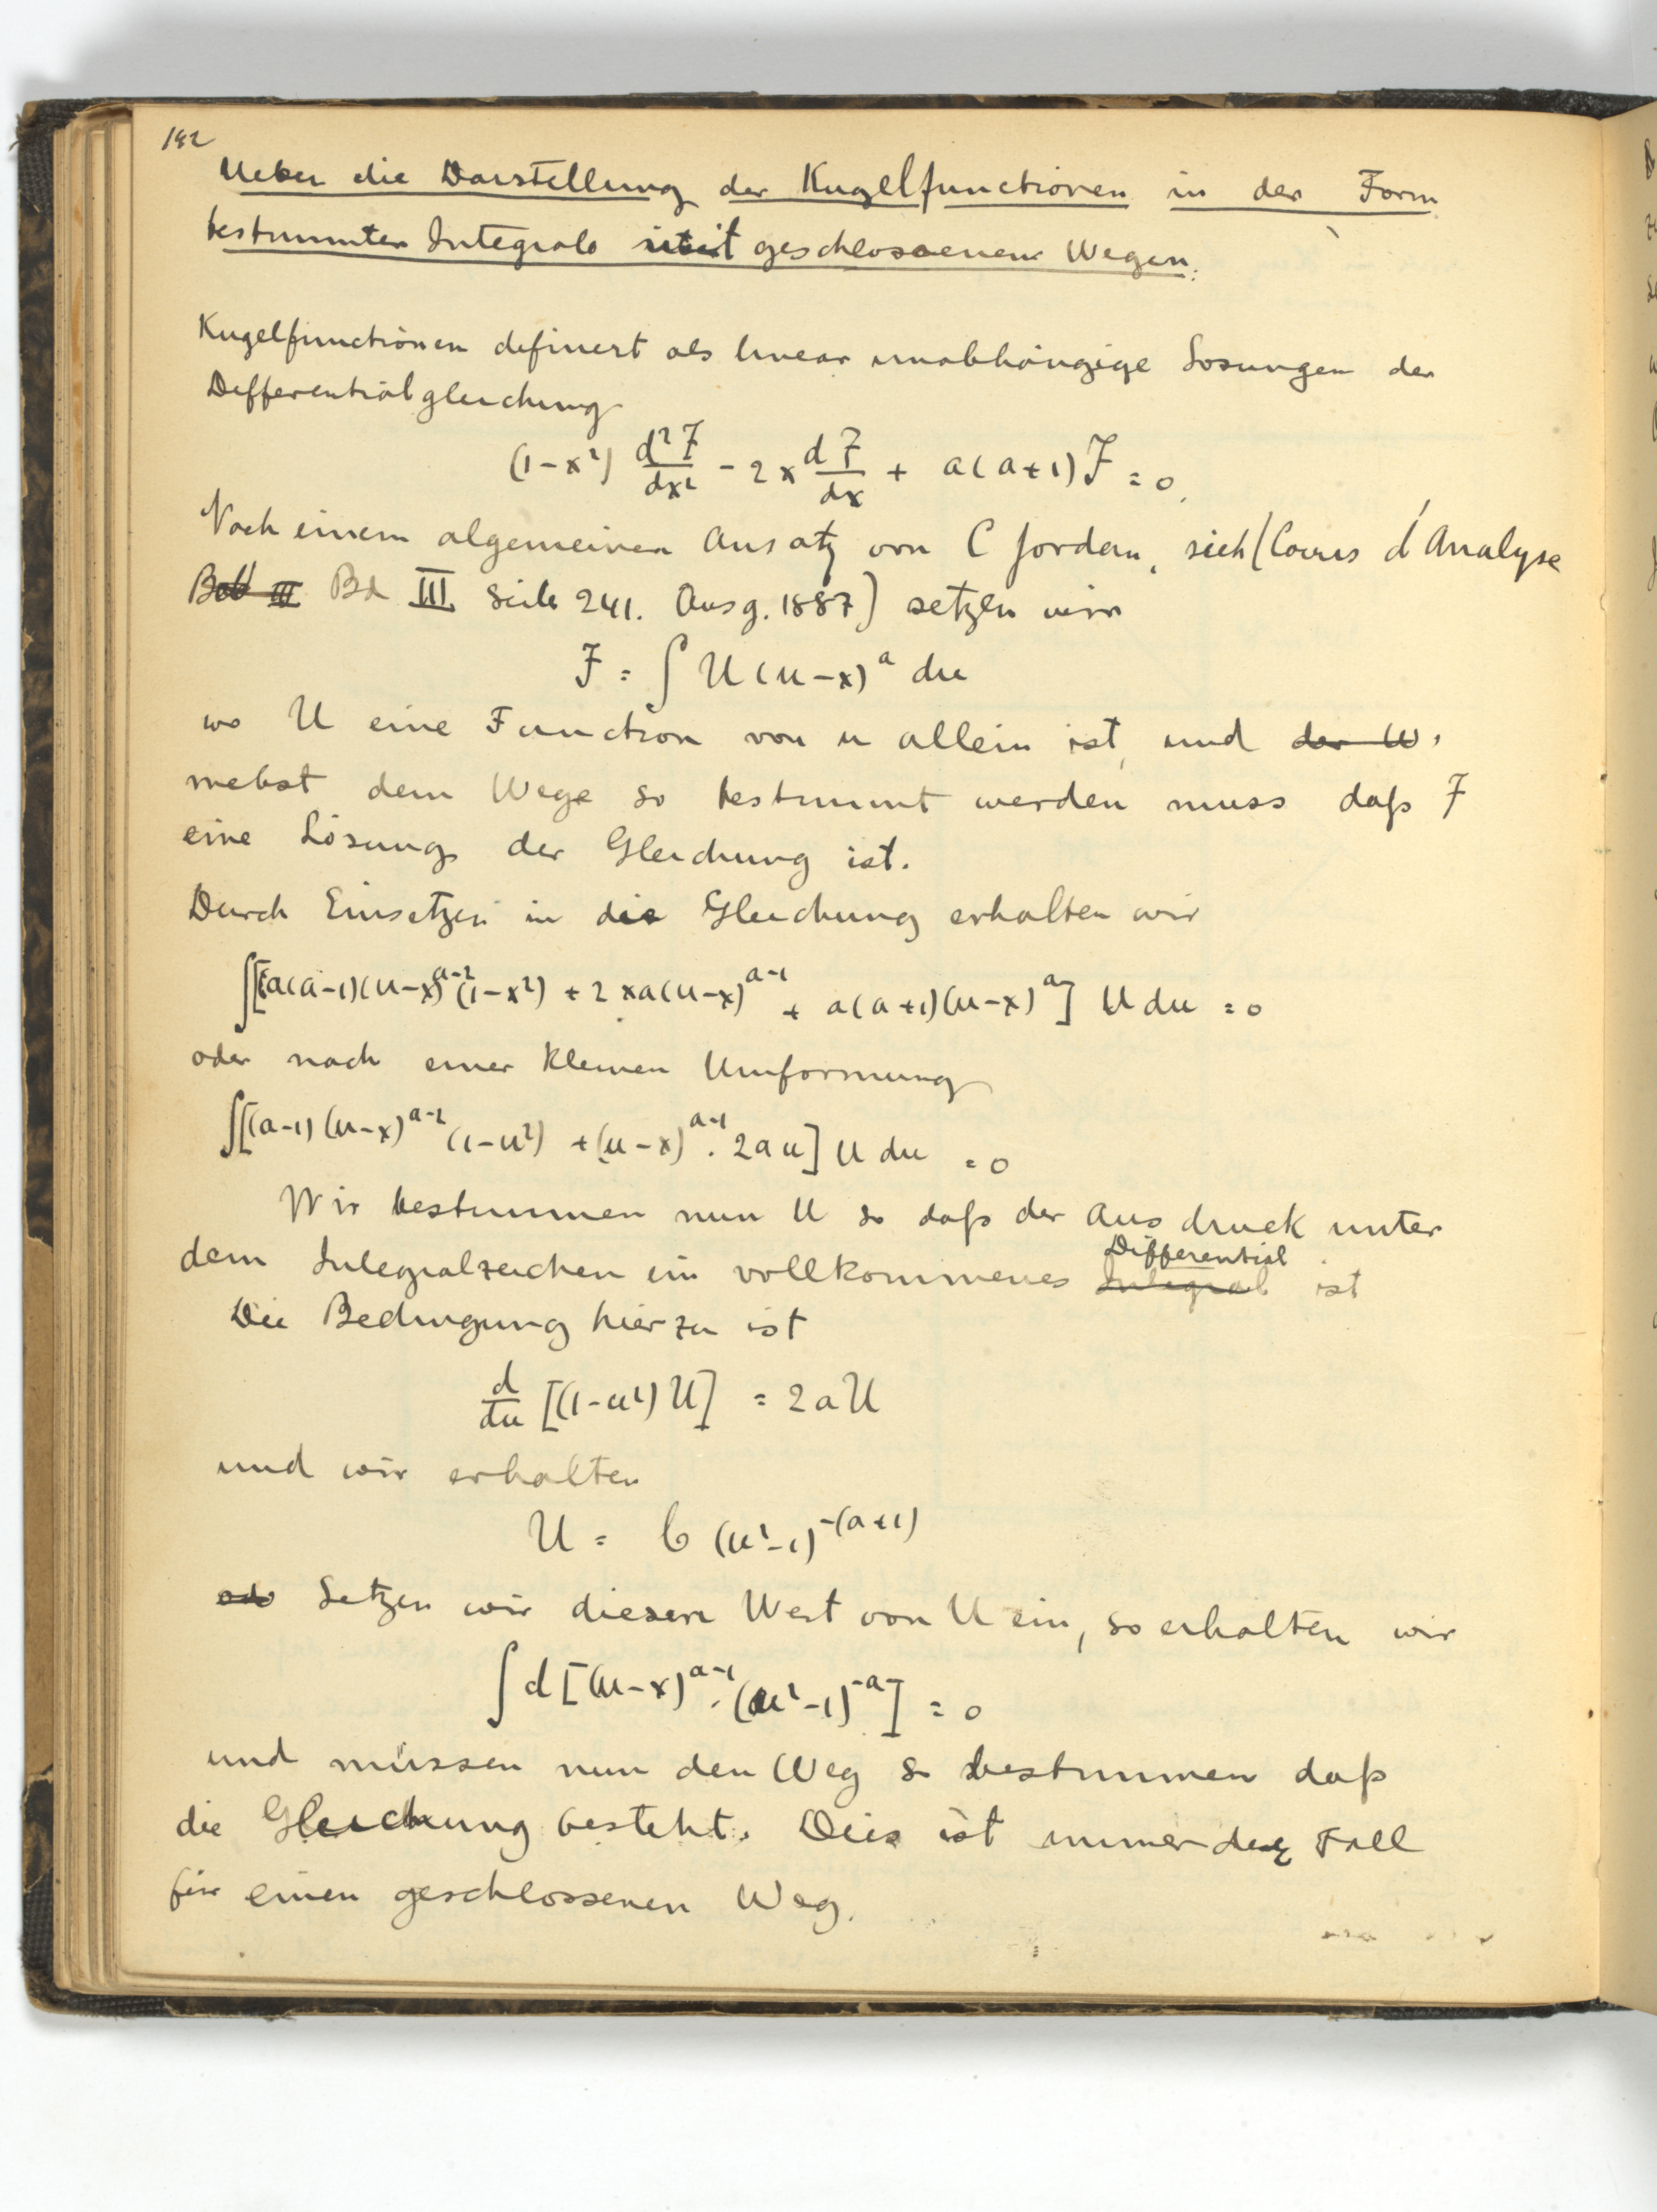 142
Ueber die Darstellung der Kugelfunctionen in der Form
bestimmter Integrale mit geschlossenen Wegen.
Kugelfunctionen definiert als linear unabhängige Lösungen der
Differentialgleichung
(1-x²) d²F/dx² - 2x dF/dx + a(a+1)F = 0.
Nach einem algemeinen Ansatz von C Jordan, sieh (Cours d'Analyse
Bd III Seite 241. Ausg. 1887) setzen wir
F = ∫ U(u-x)^a du
wo U eine Function von u allein ist, und der W.
nebst dem Wege so bestimmt werden muss daß F
eine Lösung der Gleichung ist.
Durch Einsetzen in die Gleichung erhalten wir
∫[a(a-1)(u-x)^{a-2}(1-x²) + 2xa(u-x)^{a-1} + a(a+1)(u-x)^a] U du = 0
oder nach einer kleinen Umformung
∫[(a-1)(u-x)^{a-2}(1-u²) + (u-x)^{a-1}. 2au] U du = 0
Wir bestimmen nun U so daß der Ausdruck unter
Differential
dem Integralzeichen ein vollkommenes Integral ist
Die Bedingung hierzu ist
d/du [(1-u²)U] = 2aU
und wir erhalten
U = C (u²-1)^{-(a+1)}
Setzen wir diesen Wert von U ein, so erhalten wir
∫d[(u-x)^{a-1}.(u²-1)^{-a}] = 0
und müssen nun den Weg so bestimmen daß
die Gleichung besteht. Dies ist immer der Fall
für einen geschlossenen Weg.